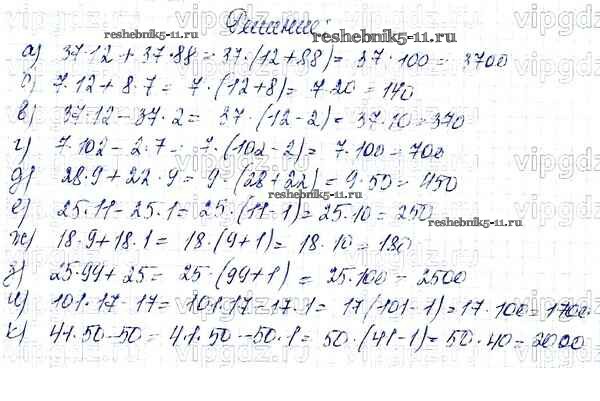 Решание:
reshebnik5-11.ru
а) 37·12 + 37·88 = 37·(12+88) = 37·100 = 3700
reshebnik5-11.ru
б) 7·12 + 8·7 = 7·(12+8) = 7·20 = 140
в) 37·12 - 37·2 = 37·(12-2) = 37·10 = 370
г) 7·102 - 2·7 = 7·(102-2) = 7·100 = 700
д) 28·9 + 22·9 = 9·(28+22) = 9·50 = 450
reshebnik5-11.ru
е) 25·11 - 25·1 = 25·(11-1) = 25·10 = 250
reshebnik5-11.ru
ж) 18·9 + 18·1 = 18·(9+1) = 18·10 = 180
з) 25·99 + 25 = 25·(99+1) = 25·100 = 2500
и) 101·17 - 17 = 101·17 - 17·1 = 17(101-1) = 17·100 = 1700
к) 41·50 - 50 = 41·50 - 50·1 = 50·(41-1) = 50·40 = 2000